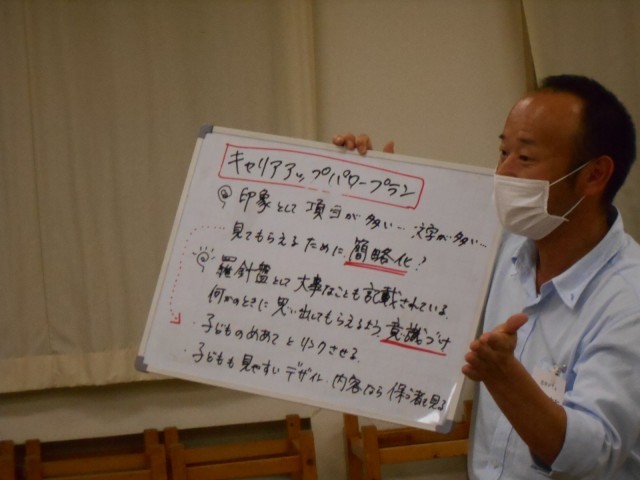 キャリアアップパワープラン
印象として 項目が多い… 文字が多い…
見てもらえるために 簡略化?
羅針盤として 大事なことも記載されている.
何かのときに 思い出してもらえるよう 意識づけ
・子どものめあて とリンクさせる.
・子どもも見やすいデザイン・内容なら 保ゴ者も見る